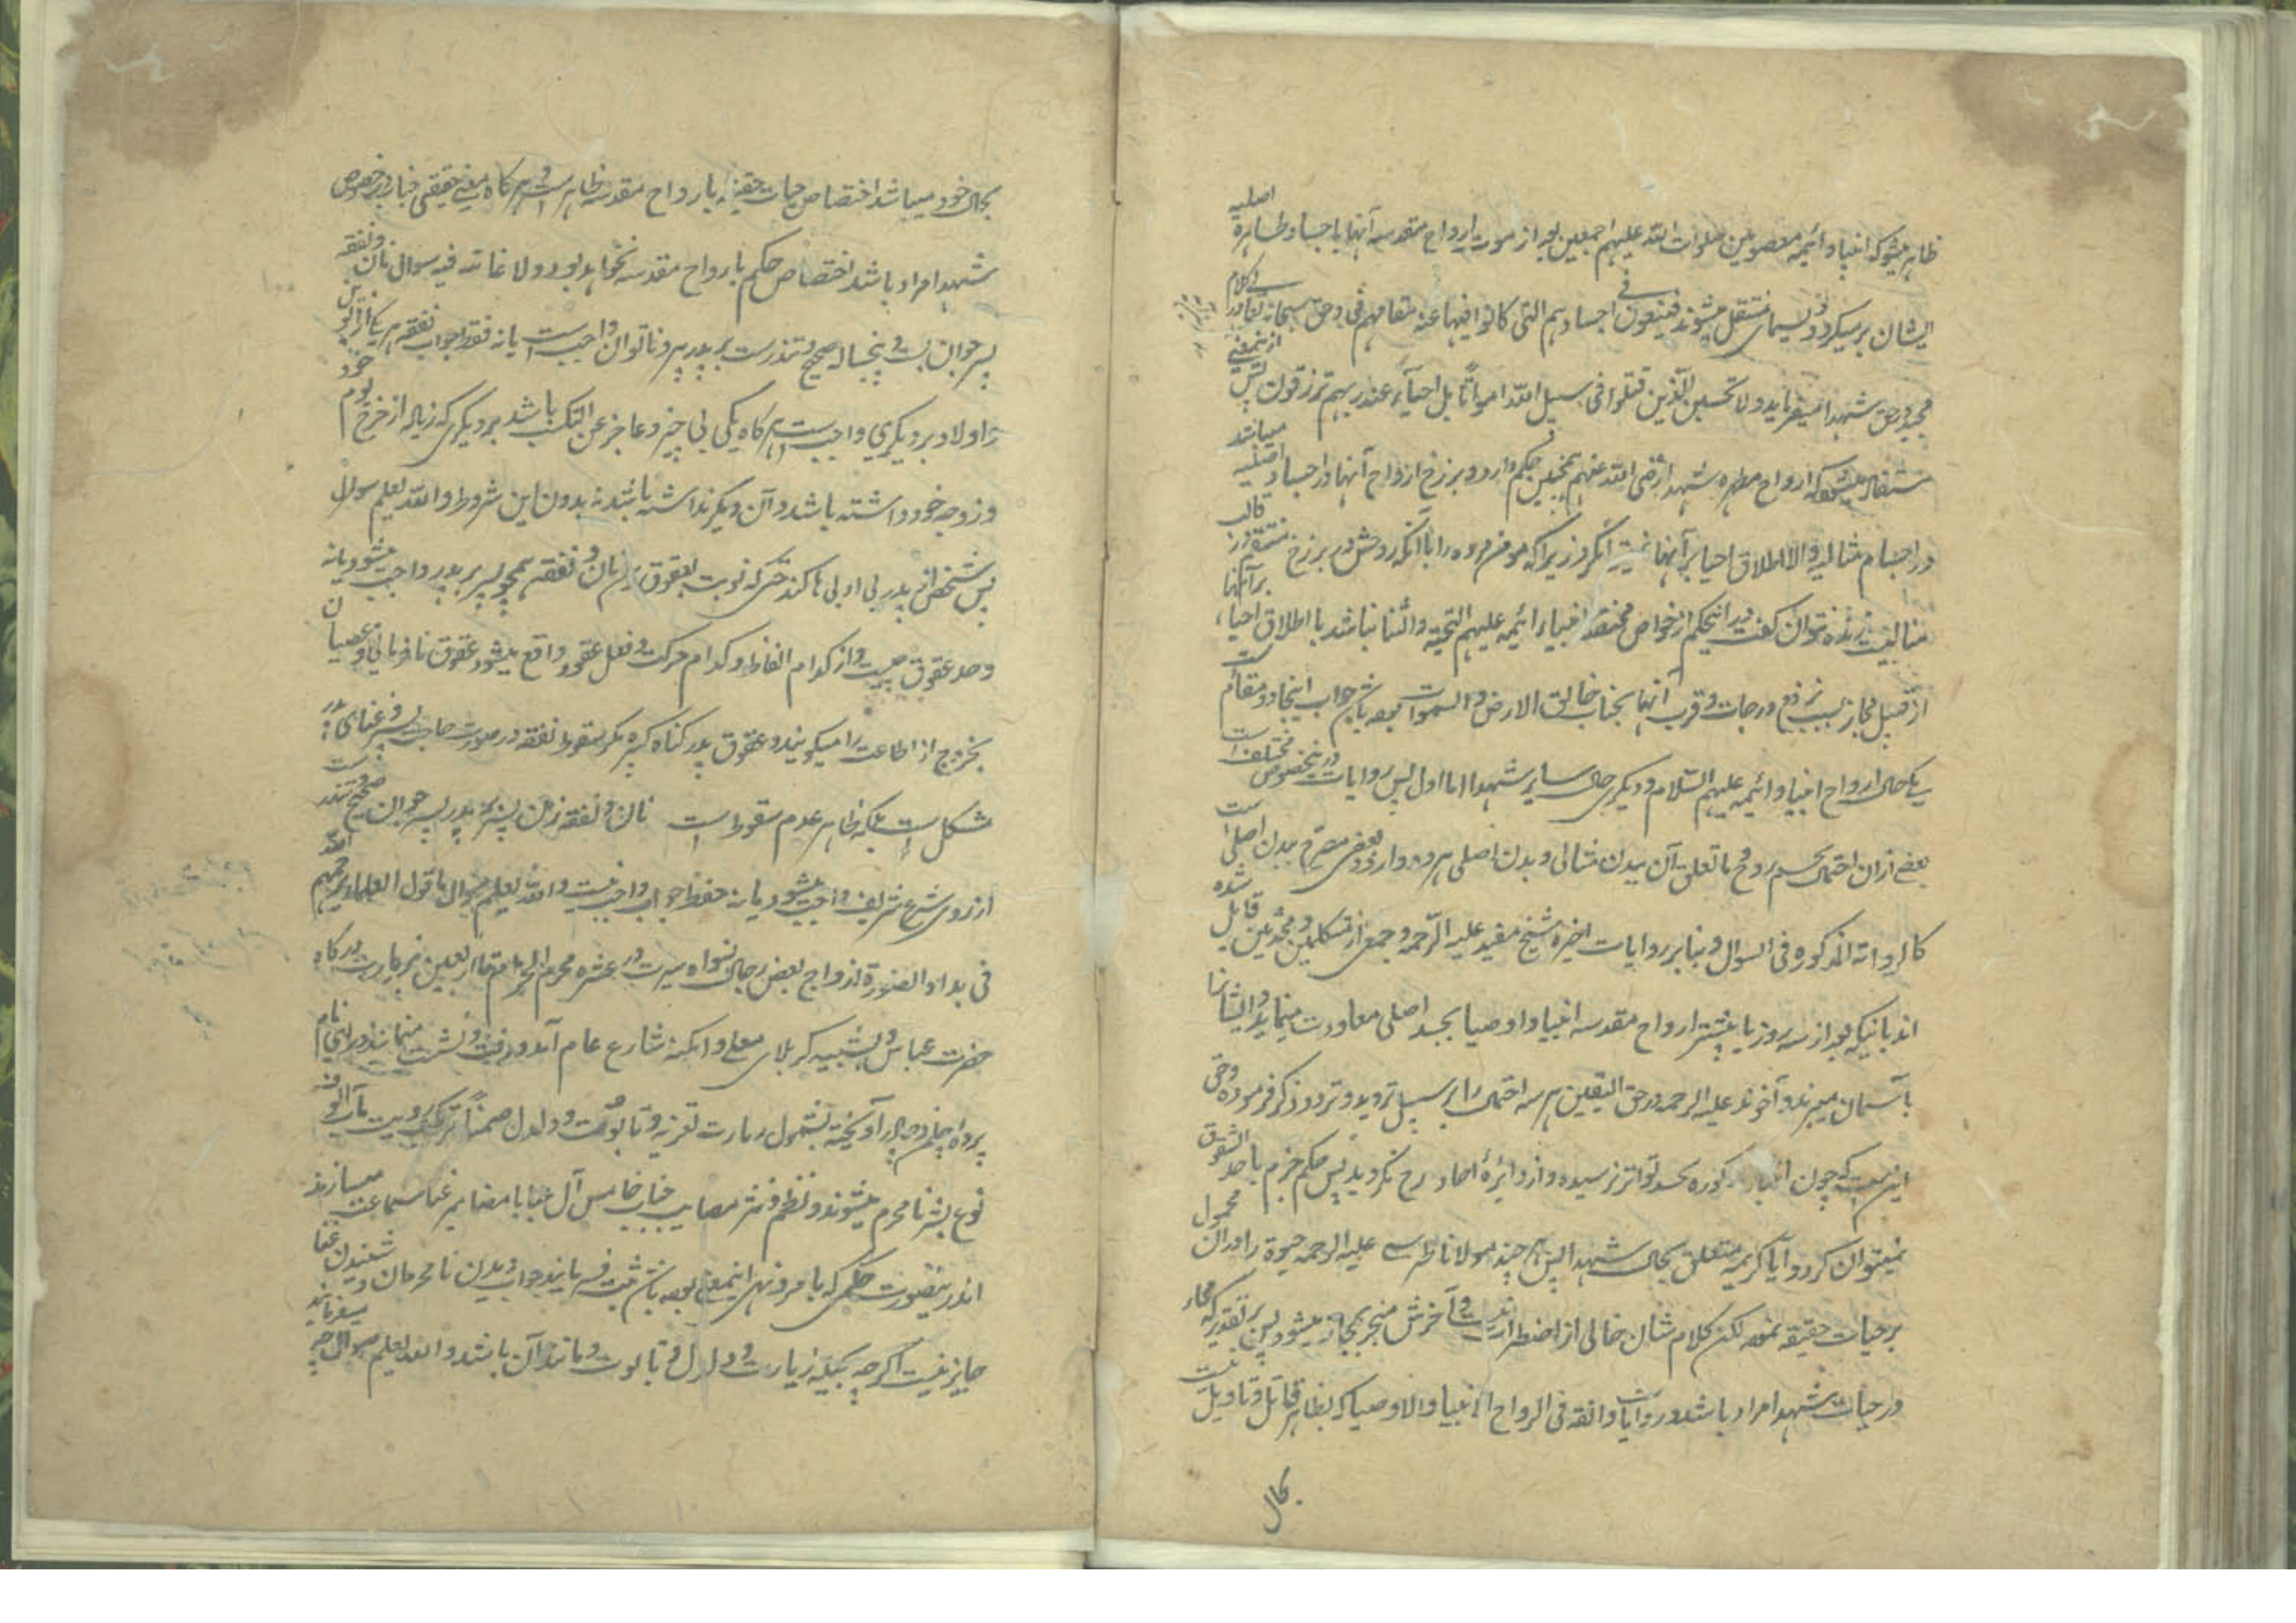 ظاهر میشود که انبیا و ائمه معصومین صلوات الله علیهم اجمعین بعد از موت ارواح مقدسه آنها باجساد طاهره اصلیه
ایشان برمیگردد و بسمای منتقل میشوند فینعمون فی اجسادهم التی کانوا فیها عند مقامهم فی و حق سبحانه تعالی در کلام
مجید در حق شهدا میفرماید ولا تحسبن الذین قتلوا فی سبیل الله امواتا بل احیاء عند ربهم یرزقون پس ازینمعنی
مستفاد میشود که ارواح مطهره شهدا رضی الله عنهم همین حکم دارد و برزخ ارواح آنها در اجساد اصلیه میباشد
در اجسام مثالیه والا اطلاق احیا بر آنها نیست زیرا که مومن مرده را با آنکه روحش در برزخ منتقل در قالب
مثالیست زنده نتوان گفت در اینحکم از خواص مختصه انبیاء ائمه علیهم التحیة والثنا نباشد یا اطلاق احیاء بر آنها
از قبیل مجاز بسبب رفع درجات و قرب آنها بجناب خالق الارض والسموات جواب اینجا دو مقام ست
یکی حال ارواح انبیا و ائمه علیهم السلام و دیگری حال سایر شهدا اما اول پس روایات درینخصوص مختلف است
بعضی ازان احتمال جسم روح با تعلق آن ببدن مثالی و بدن اصلی هر دو دارد و بعضی مصرح ببدن اصلی ست
کالروایة المذکوره فی السوال و بنابر روایات اخیره شیخ مفید علیه الرحمه و جمعی از متکلمین و محدثین قایل شده
اند بانیکه بعد از سه روز یا بیشتر ارواح مقدسه انبیا و اوصیا بجسد اصلی معاودت مینماید و ایشانرا
بآسمان میبرند و آخوند علیه الرحمه در حق الیقین هر سه احتمال را بر سبیل تردید و تردد ذکر فرموده و حق
اینست که چون اخبار مذکوره بحد تواتر نرسیده و از دائرۀ احاد خارج نگردیده پس حکم جزم باحد الشقوق
نمیتوان کرد و آیا کریمه متعلق بحال شهدا پس هر چند مولانا طبرسی علیه الرحمه حیوة را در ان محمول
بر حیات حقیقه نموده لکن کلام شان خالی از اضطراب نیست و آخرش منجر بمجاز میشود پس بر تقدیریکه مجاز
در حیات شهدا مراد باشد و روایات واقعه فی ارواح الانبیا والاوصیا که بظاهر قابل تاویل نیست
بحال
بحال خود میباشد اختصاص حیات حقیقیه بارواح مقدسه ظاهر ست و هرگاه معنی حقیقی حیات در خصوص
شهدا مراد باشد اختصاص حکم بارواح مقدسه نخواهد بود ولا غائلة فیه سوال نان و نفقه
پسر جوان بست و پنجساله صحیح و تندرست بر پدر پیر و ناتوان واجب است یا نه فقط جواب نفقه هر یک از ابوین
و اولاد بر دیگری واجب ست هرگاه یکی بی چیز و عاجز عن التکسب باشد بر دیگری که زیاده از خرج یوم خود
و زوجه خود داشته باشد و آن دیگر نداشته باشد نه بدون این شروط والله یعلم سوال
پس شخص از پدر بی ادبی ها کند حتی که نوبت بعقوق رسد نان و نفقه همچو پسر بر پدر واجب میشود یا نه
و حد عقوق چیست و از کدام الفاظ و کدام حرکت و فعل عقوق واقع میشود عقوق نافرمانی و عصیان
بخروج از اطاعت را میگویند و عقوق پدر گناه کبیره مگر سقوط نفقه در صورت حاجت پسر و غنای پدر
مشکل است بلکه ظاهر عدم سقوط است نان و نفقه زن پسر بر پدر پسر جوان صحیح و تندرست
از روی شرع شریف واجب میشود یا نه فقط جواب واجب نیست والله یعلم سوال ما قول العلماء رحمهم الله
فی هذه الصورة ازواج بعض رجال نسواه سیرت در عشره محرم الحرام تا اربعین بزیارت درگاه
حضرت عباس و شبیه کربلای معلی و امکنه شارع عام آمد و رفت و نشست مینمایند
پرده آویخته بشمول زیارت تعزیه و تابوت و دلدل ضمناً مرتکب رویت
نوع بشر نامحرم میشوند و نظم و نثر مصایب جناب خامس آل عبا با مضامیر غنا سماعت میسازند
اندرینصورت حکمی که بامر و نهی اینمعنی ثبت فرمایند جواب دیدن نامحرمان و شنیدن غنا
جایز نیست اگرچه بحیله زیارت و دلدل و تابوت و مانند آن باشد والله یعلم سوال چه میفرمایند